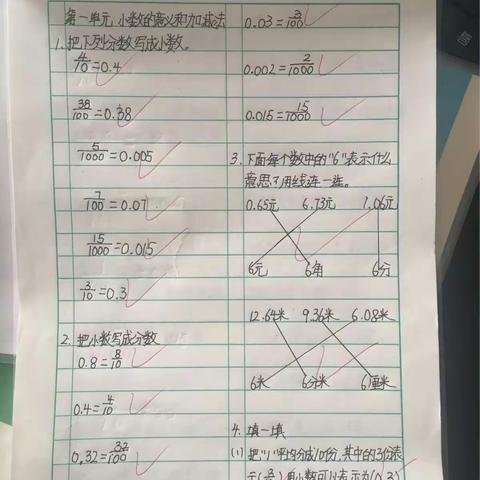 第一单元,小数的意义和加减法
1.把下列分数写成小数。
4/10=0.4
38/100=0.38
5/1000=0.005
7/100=0.07
15/1000=0.015
3/10=0.3
2.把小数写成分数
0.8=8/10
0.4=4/10
0.32=32/100
0.03=3/100
0.002=2/1000
0.015=15/1000
3.下面每个数中的"6"表示什么
意思?用线连一连。
0.65元 6.73元 1.06元
6元 6角 6分
12.64米 9.36米 6.08米
6米 6分米 6厘米
4.填一填
(1)把"1"平均分成10份,其中的3份表
示(3/10)用小数可以表示为(0.3)